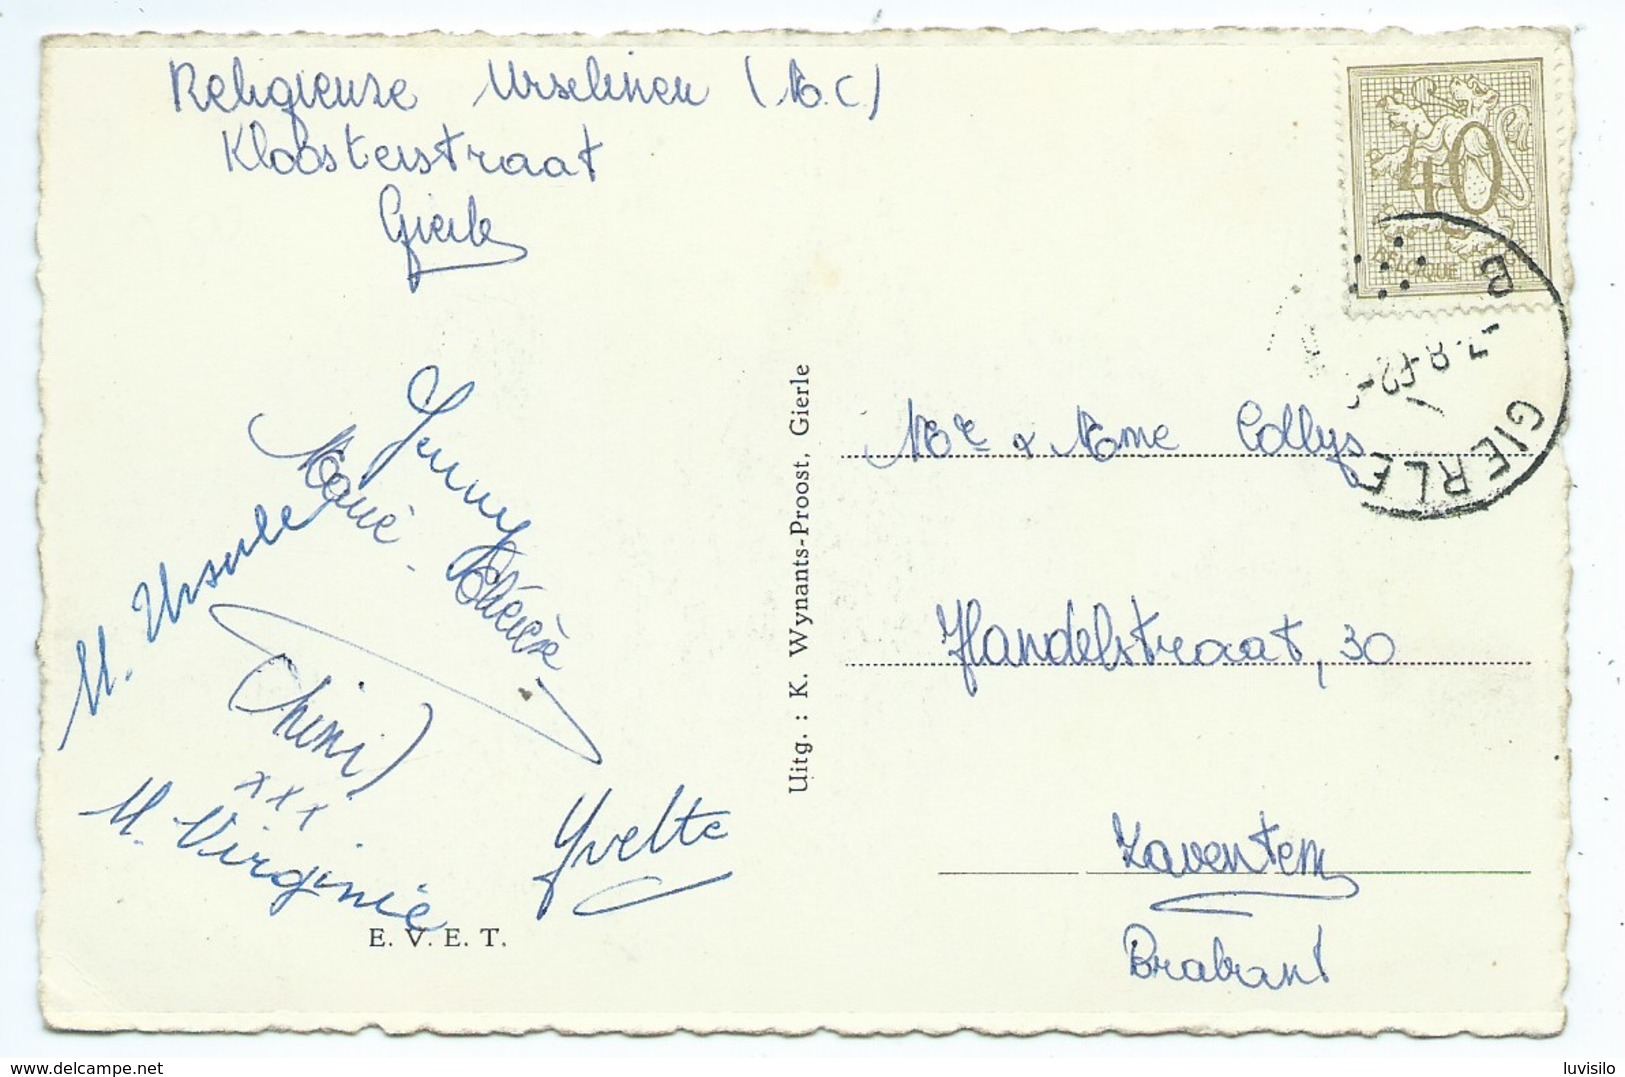 Religieuze Urselinen (M.C.)
Kloosterstraat
Gierle
40
BELGIQUE
B
GIERLE
Jenny
Marie-
M. Ursule
Chini
xxx
M. Virginie
Yvette
E. V. E. T.
Uitg. : K. Wynants-Proost, Gierle
Mr & Mme Collys
Handelstraat, 30
Zaventem
Brabant
www.delcampe.net
luvisilo